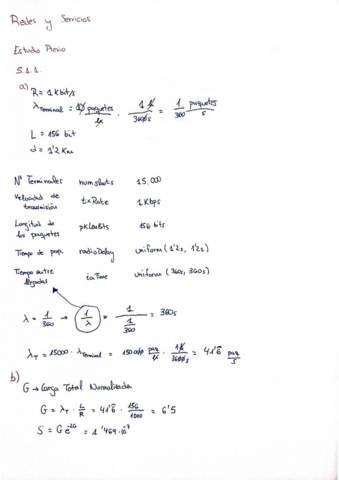 Redes y Servicios
Estudio Previo
5.1.1.
a)
R = 1 Kbit/s
λterminal = 10 paquetes / 1h · 1h / 3600s = 1/360 paquetes/s
L = 156 bit
d = 1'2 Km
Nº Terminales numslots 15.000
Velocidad de transmisión txRate 1 Kbps
Longitud de los paquetes pkLenBits 156 bits
Tiempo de prop. radioDelay uniform (1'2s, 1'2s)
Tiempo entre llegadas iaTime uniform (360s, 360s)
λ = 1/360 → 1/λ = 1/(1/360) = 360s
λT = 15000 · λterminal = 150.000 paq/h · 1h/3600s = 41'6 paq/s
b)
G → Carga Total Normalizada
G = λT · L/R = 41'6 · 156/1000 = 6'5
S = G e^-2G = 1'469·10